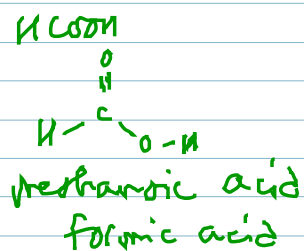 HCOOH
O
C
H
O-H
methanoic acid
formic acid